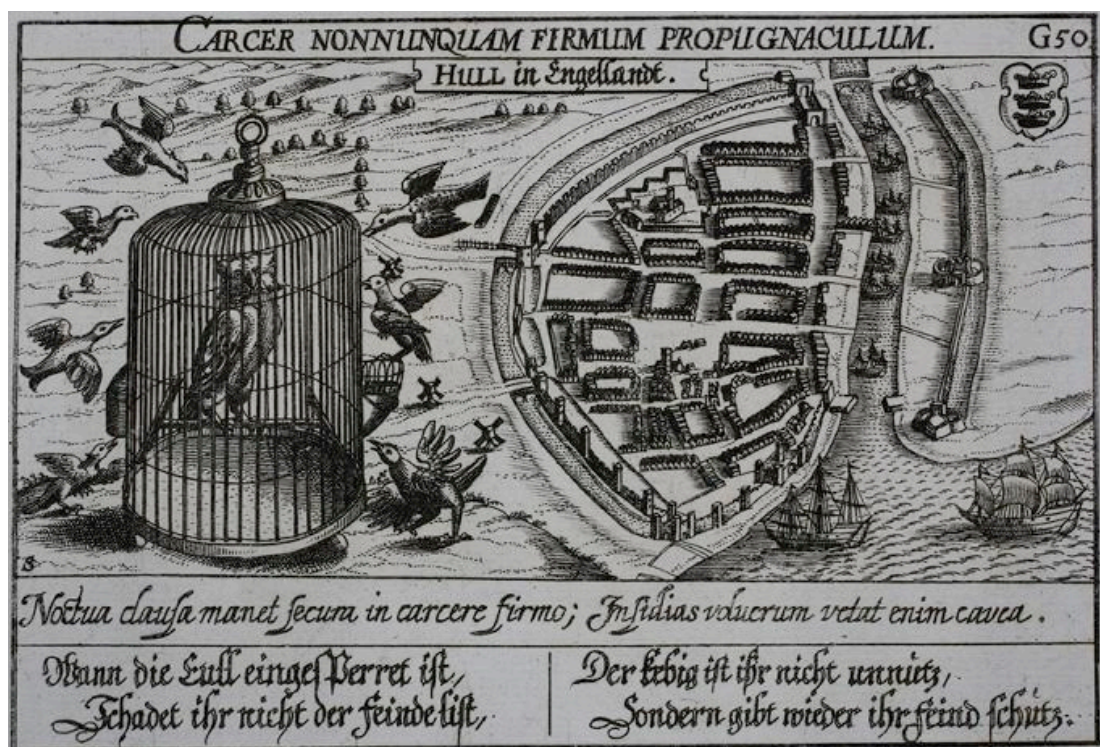 CARCER NONNUNQUAM FIRMUM PROPUGNACULUM. G50
HULL in Engellandt.
8
Noctua clauſa manet ſecura in carcere firmo; Inſidias volucrum vetat enim cavea.
Wann die Eull eingeſperret iſt,
Schadet ihr nicht der feinde liſt,
Der kebig iſt ihr nicht unnütz,
Sondern gibt wieder ihr feind ſchütz.